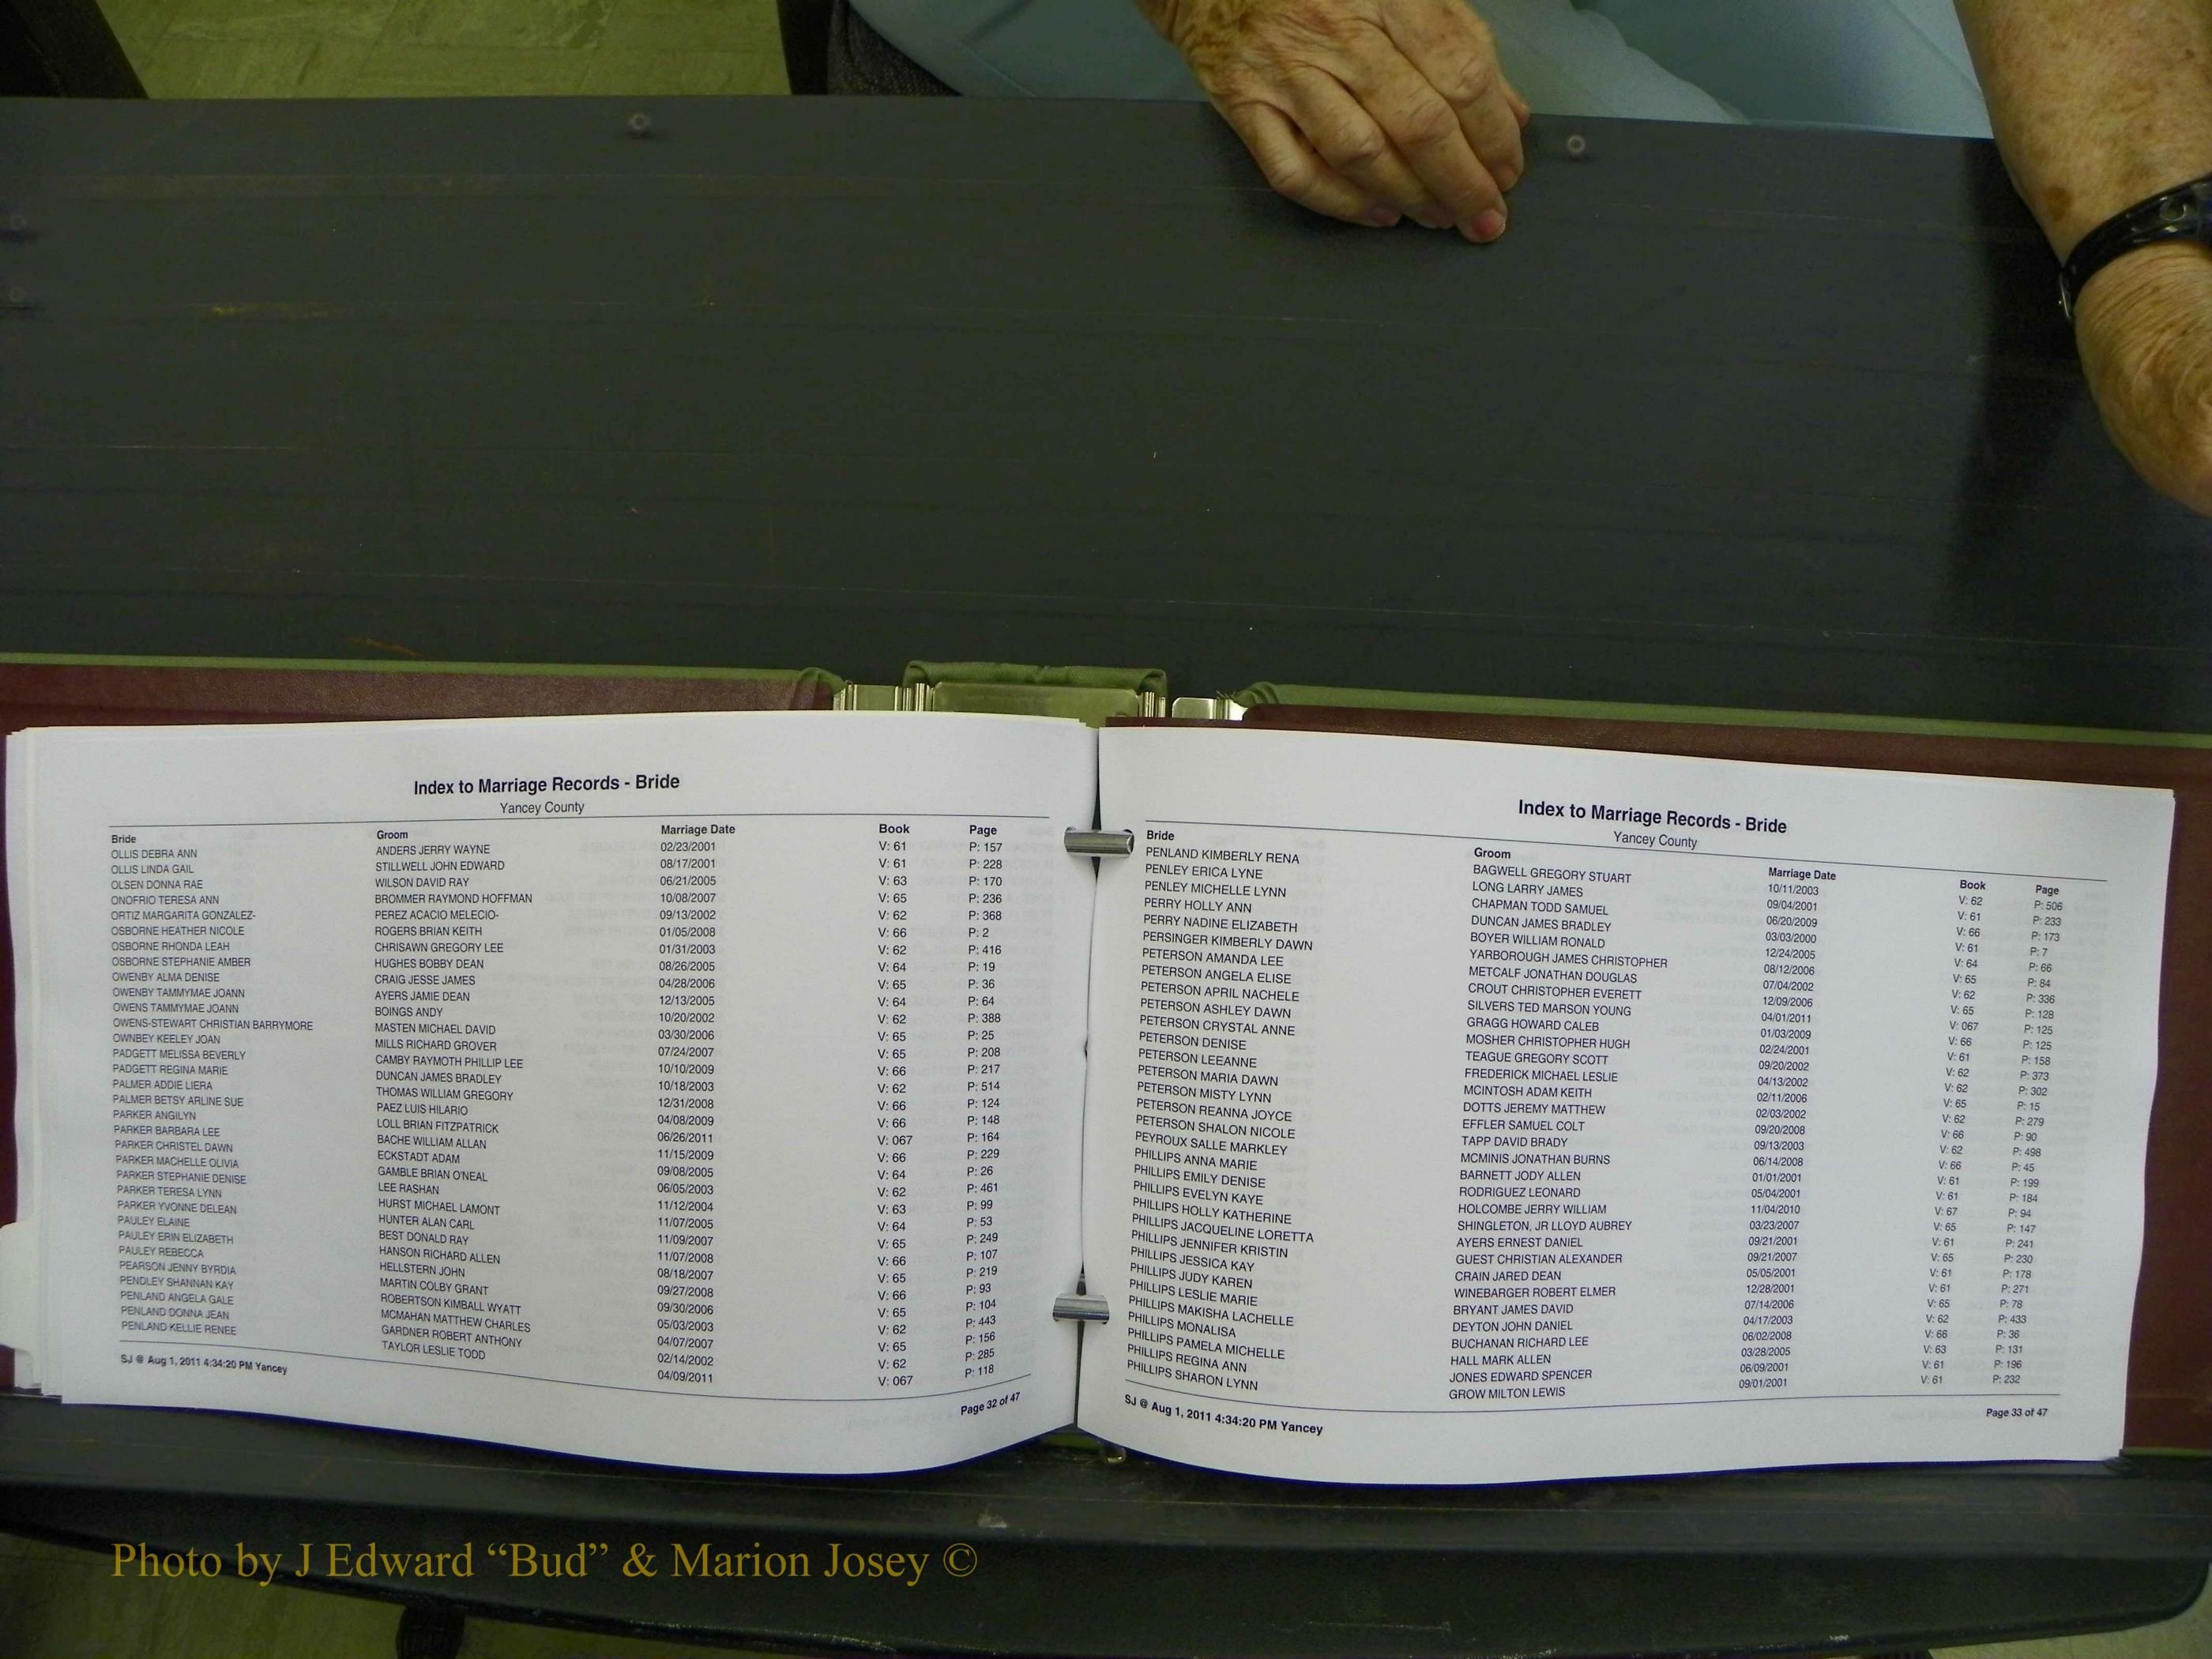 Index to Marriage Records - Bride
Yancey County
Bride Groom Marriage Date Book Page
OLLIS DEBRA ANN ANDERS JERRY WAYNE 02/23/2001 V: 61 P: 157
OLLIS LINDA GAIL STILLWELL JOHN EDWARD 08/17/2001 V: 61 P: 228
OLSEN DONNA RAE WILSON DAVID RAY 06/21/2005 V: 63 P: 170
ONOFRIO TERESA ANN BROMMER RAYMOND HOFFMAN 10/08/2007 V: 65 P: 236
ORTIZ MARGARITA GONZALEZ- PEREZ ACACIO MELECIO- 09/13/2002 V: 62 P: 368
OSBORNE HEATHER NICOLE ROGERS BRIAN KEITH 01/05/2008 V: 66 P: 2
OSBORNE RHONDA LEAH CHRISAWN GREGORY LEE 01/31/2003 V: 62 P: 416
OSBORNE STEPHANIE AMBER HUGHES BOBBY DEAN 08/26/2005 V: 64 P: 19
OWENBY ALMA DENISE CRAIG JESSE JAMES 04/28/2006 V: 65 P: 36
OWENBY TAMMYMAE JOANN AYERS JAMIE DEAN 12/13/2005 V: 64 P: 64
OWENS TAMMYMAE JOANN BOINGS ANDY 10/20/2002 V: 62 P: 388
OWENS-STEWART CHRISTIAN BARRYMORE MASTEN MICHAEL DAVID 03/30/2006 V: 65 P: 25
OWNBEY KEELEY JOAN MILLS RICHARD GROVER 07/24/2007 V: 65 P: 208
PADGETT MELISSA BEVERLY CAMBY RAYMOTH PHILLIP LEE 10/10/2009 V: 66 P: 217
PADGETT REGINA MARIE DUNCAN JAMES BRADLEY 10/18/2003 V: 62 P: 514
PALMER ADDIE LIERA THOMAS WILLIAM GREGORY 12/31/2008 V: 66 P: 124
PALMER BETSY ARLINE SUE PAEZ LUIS HILARIO 04/08/2009 V: 66 P: 148
PARKER ANGILYN LOLL BRIAN FITZPATRICK 06/26/2011 V: 067 P: 164
PARKER BARBARA LEE BACHE WILLIAM ALLAN 11/15/2009 V: 66 P: 229
PARKER CHRISTEL DAWN ECKSTADT ADAM 09/08/2005 V: 64 P: 26
PARKER MACHELLE OLIVIA GAMBLE BRIAN O'NEAL 06/05/2003 V: 62 P: 461
PARKER STEPHANIE DENISE LEE RASHAN 11/12/2004 V: 63 P: 99
PARKER TERESA LYNN HURST MICHAEL LAMONT 11/07/2005 V: 64 P: 53
PARKER YVONNE DELEAN HUNTER ALAN CARL 11/09/2007 V: 65 P: 249
PAULEY ELAINE BEST DONALD RAY 11/07/2008 V: 66 P: 107
PAULEY ERIN ELIZABETH HANSON RICHARD ALLEN 08/18/2007 V: 65 P: 219
PAULEY REBECCA HELLSTERN JOHN 09/27/2008 V: 66 P: 93
PEARSON JENNY BYRDIA MARTIN COLBY GRANT 09/30/2006 V: 65 P: 104
PENDLEY SHANNAN KAY ROBERTSON KIMBALL WYATT 05/03/2003 V: 62 P: 443
PENLAND ANGELA GALE MCMAHAN MATTHEW CHARLES 04/07/2007 V: 65 P: 156
PENLAND DONNA JEAN GARDNER ROBERT ANTHONY 02/14/2002 V: 62 P: 285
PENLAND KELLIE RENEE TAYLOR LESLIE TODD 04/09/2011 V: 067 P: 118
SJ @ Aug 1, 2011 4:34:20 PM Yancey Page 32 of 47
Index to Marriage Records - Bride
Yancey County
Bride Groom Marriage Date Book Page
PENLAND KIMBERLY RENA BAGWELL GREGORY STUART 10/11/2003 V: 62 P: 506
PENLEY ERICA LYNE LONG LARRY JAMES 09/04/2001 V: 61 P: 233
PENLEY MICHELLE LYNN CHAPMAN TODD SAMUEL 06/20/2009 V: 66 P: 173
PERRY HOLLY ANN DUNCAN JAMES BRADLEY 03/03/2000 V: 61 P: 7
PERRY NADINE ELIZABETH BOYER WILLIAM RONALD 12/24/2005 V: 64 P: 66
PERSINGER KIMBERLY DAWN YARBOROUGH JAMES CHRISTOPHER 08/12/2006 V: 65 P: 84
PETERSON AMANDA LEE METCALF JONATHAN DOUGLAS 07/04/2002 V: 62 P: 336
PETERSON ANGELA ELISE CROUT CHRISTOPHER EVERETT 12/09/2006 V: 65 P: 128
PETERSON APRIL NACHELE SILVERS TED MARSON YOUNG 04/01/2011 V: 067 P: 125
PETERSON ASHLEY DAWN GRAGG HOWARD CALEB 01/03/2009 V: 66 P: 125
PETERSON CRYSTAL ANNE MOSHER CHRISTOPHER HUGH 02/24/2001 V: 61 P: 158
PETERSON DENISE TEAGUE GREGORY SCOTT 09/20/2002 V: 62 P: 373
PETERSON LEEANNE FREDERICK MICHAEL LESLIE 04/13/2002 V: 62 P: 302
PETERSON MARIA DAWN MCINTOSH ADAM KEITH 02/11/2006 V: 65 P: 15
PETERSON MISTY LYNN DOTTS JEREMY MATTHEW 02/03/2002 V: 62 P: 279
PETERSON REANNA JOYCE EFFLER SAMUEL COLT 09/20/2008 V: 66 P: 90
PETERSON SHALON NICOLE TAPP DAVID BRADY 09/13/2003 V: 62 P: 498
PEYROUX SALLE MARKLEY MCMINIS JONATHAN BURNS 06/14/2008 V: 66 P: 45
PHILLIPS ANNA MARIE BARNETT JODY ALLEN 01/01/2001 V: 61 P: 199
PHILLIPS EMILY DENISE RODRIGUEZ LEONARD 05/04/2001 V: 61 P: 184
PHILLIPS EVELYN KAYE HOLCOMBE JERRY WILLIAM 11/04/2010 V: 67 P: 94
PHILLIPS HOLLY KATHERINE SHINGLETON, JR LLOYD AUBREY 03/23/2007 V: 65 P: 147
PHILLIPS JACQUELINE LORETTA AYERS ERNEST DANIEL 09/21/2001 V: 61 P: 241
PHILLIPS JENNIFER KRISTIN GUEST CHRISTIAN ALEXANDER 09/21/2007 V: 65 P: 230
PHILLIPS JESSICA KAY CRAIN JARED DEAN 05/05/2001 V: 61 P: 178
PHILLIPS JUDY KAREN WINEBARGER ROBERT ELMER 12/28/2001 V: 61 P: 271
PHILLIPS LESLIE MARIE BRYANT JAMES DAVID 07/14/2006 V: 65 P: 78
PHILLIPS MAKISHA LACHELLE DEYTON JOHN DANIEL 04/17/2003 V: 62 P: 433
PHILLIPS MONALISA BUCHANAN RICHARD LEE 06/02/2008 V: 66 P: 36
PHILLIPS PAMELA MICHELLE HALL MARK ALLEN 03/28/2005 V: 63 P: 131
PHILLIPS REGINA ANN JONES EDWARD SPENCER 06/09/2001 V: 61 P: 196
PHILLIPS SHARON LYNN GROW MILTON LEWIS 09/01/2001 V: 61 P: 232
SJ @ Aug 1, 2011 4:34:20 PM Yancey Page 33 of 47
Photo by J Edward “Bud” & Marion Josey ©